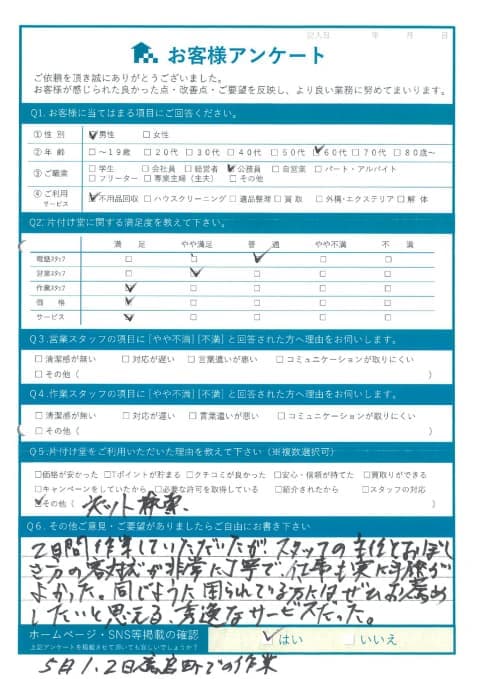 記入日 年 月 日
お客様アンケート
ご依頼を頂き誠にありがとうございました。
お客様が感じられた良かった点・改善点・ご要望を反映し、より良い業務に努めてまいります。
Q1. お客様に当てはまる項目にご回答ください。
①性 別 ☑男性 □女性
②年 齢 □～19歳 □20代 □30代 □40代 □50代 ☑60代 □70代 □80歳～
③ご職業 □学生 □会社員 □経営者 ☑公務員 □自営業 □パート・アルバイト
□フリーター □専業主婦（主夫） □その他
④ご利用サービス ☑不用品回収 □ハウスクリーニング □遺品整理 □買取 □外構・エクステリア □解体
Q2. 片付け堂に関する満足度を教えて下さい。
満 足 やや満足 普 通 やや不満 不 満
電話スタッフ □ □ ☑ □ □
営業スタッフ □ ☑ □ □ □
作業スタッフ ☑ □ □ □ □
価 格 ☑ □ □ □ □
サービス ☑ □ □ □ □
Q3. 営業スタッフの項目に［やや不満］［不満］と回答された方へ理由をお伺いします。
□清潔感が無い □対応が遅い □言葉遣いが悪い □コミュニケーションが取りにくい
□その他（ ）
Q4. 作業スタッフの項目に［やや不満］［不満］と回答された方へ理由をお伺いします。
□清潔感が無い □対応が遅い □言葉遣いが悪い □コミュニケーションが取りにくい
□その他（ ）
Q5. 片付け堂をご利用いただいた理由を教えて下さい（※複数選択可）
□価格が安かった □Tポイントが貯まる □クチコミが良かった □安心・信頼が持てた □買取りができる
□キャンペーンをしていたから □必要な許可を取得している □紹介されたから □スタッフの対応
☑その他（ ネット検索、
Q6. その他ご意見・ご要望がありましたらご自由にお書き下さい
2日間作業していただいたが、スタッフの主任とおぼし
き方の応対が非常に丁寧で、仕事も実に手際が
よかった。同じように困られている方にはぜひお薦め
したいと思える、秀逸なサービスだった。
ホームページ・SNS等掲載の確認 ☑はい □いいえ
上記アンケートを掲載させて頂いても宜しいでしょうか？
5月1、2日 町での作業